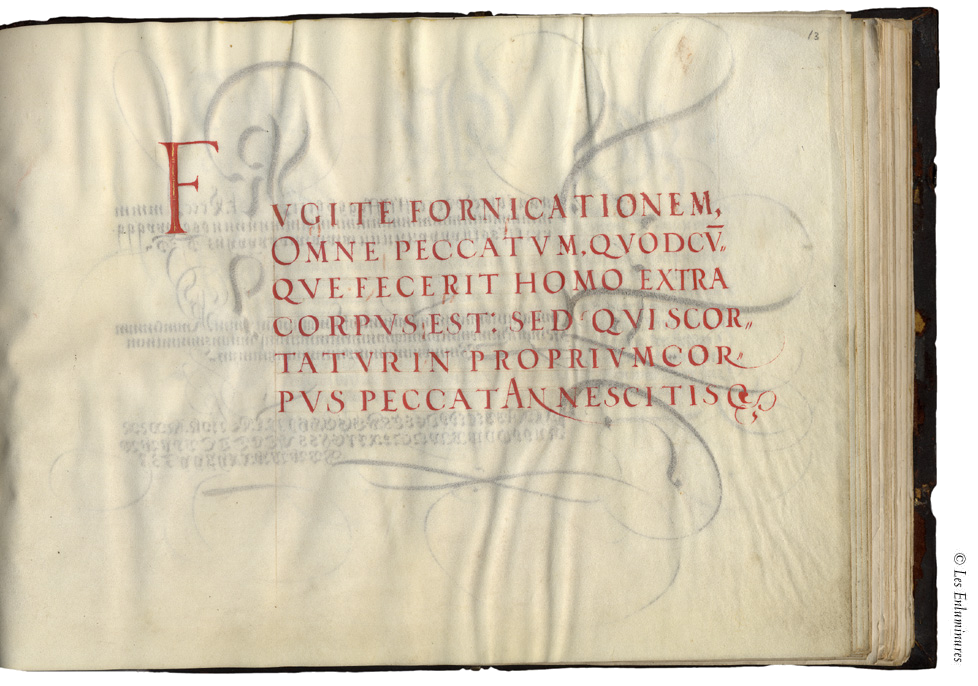 13
FVGITE FORNICATIONEM,
OMNE PECCATVM, QVODCV̄„
QVE FECERIT HOMO EXTRA
CORPVS, EST: SED QVI SCOR„
TATVR IN PROPRIVM COR„
PVS PECCAT AN NESCITIS Q
© Les Enluminures